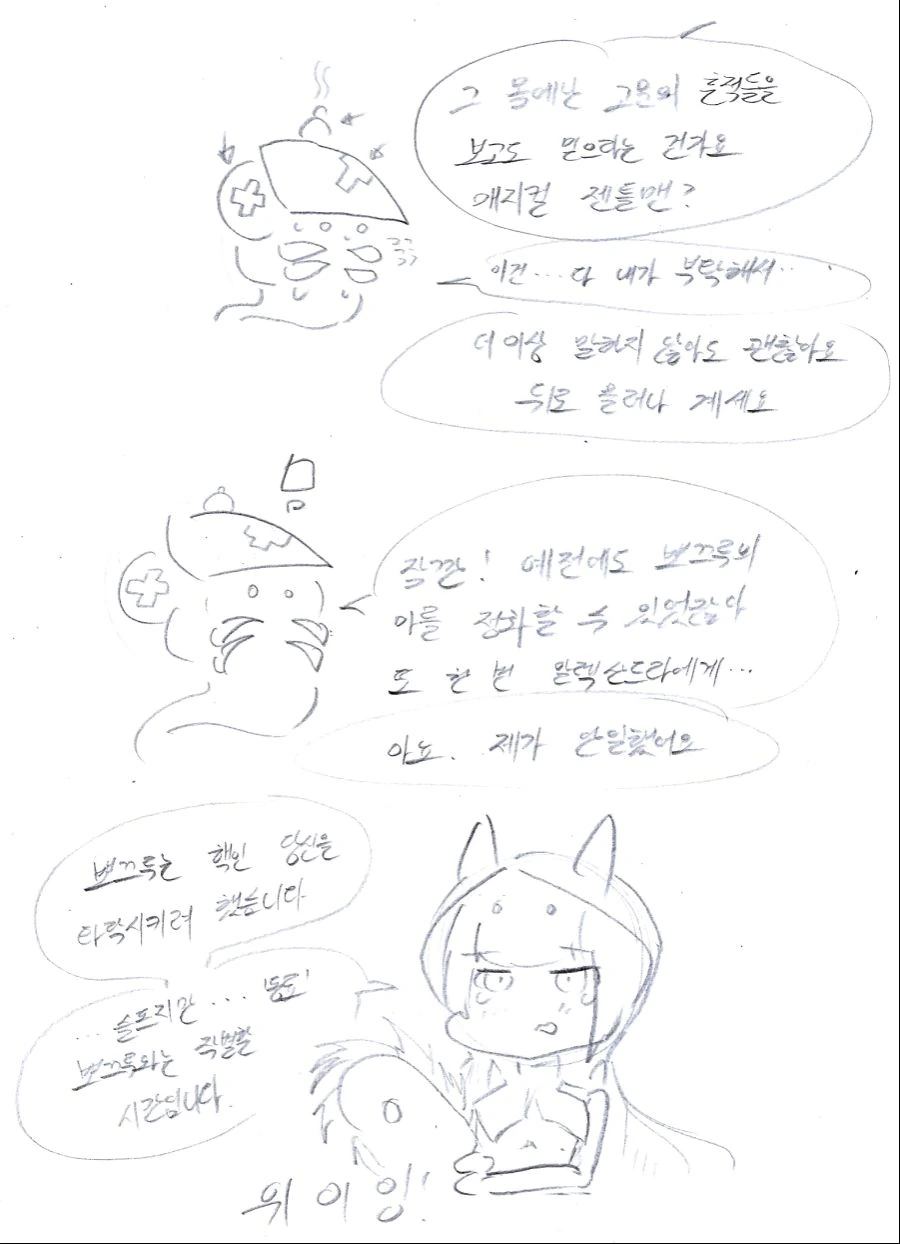 그 몸에난 고문의 흔적들을
보고도 믿으라는 건가요
매지컬 젠틀맨?
이건... 다 내가 부탁해서..
더이상 말하지 않아도 괜찮아요
뒤로 물러나 계세요
믐
작깐! 예전에도 뽀끄루의
마를 정화할 수 있었잖아
또 한 번 알렉산드라에게...
아뇨. 제가 안일했어요
뽀끄루는 핵인 당신을
타락시키려 했습니다
...슬프지만... '동료'
뽀끄루와는 작별할
시간입니다.
위이잉!